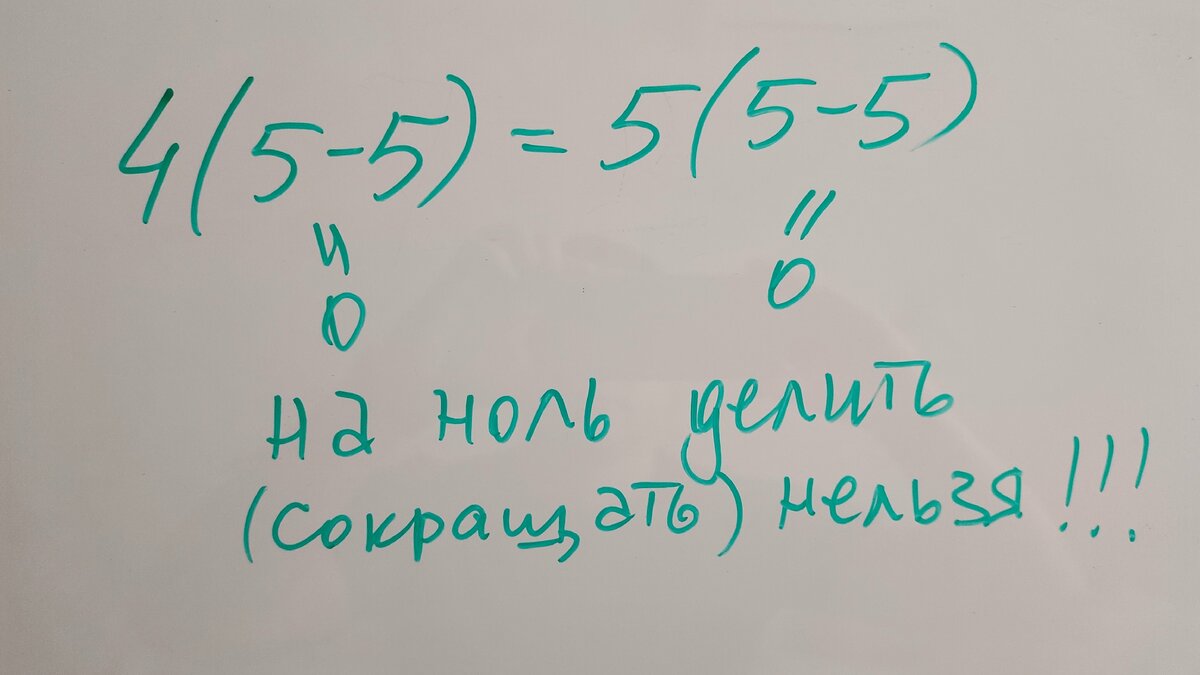 4(5-5) = 5(5-5)
= =
0 0
на ноль делить
(сокращать) нельзя!!!